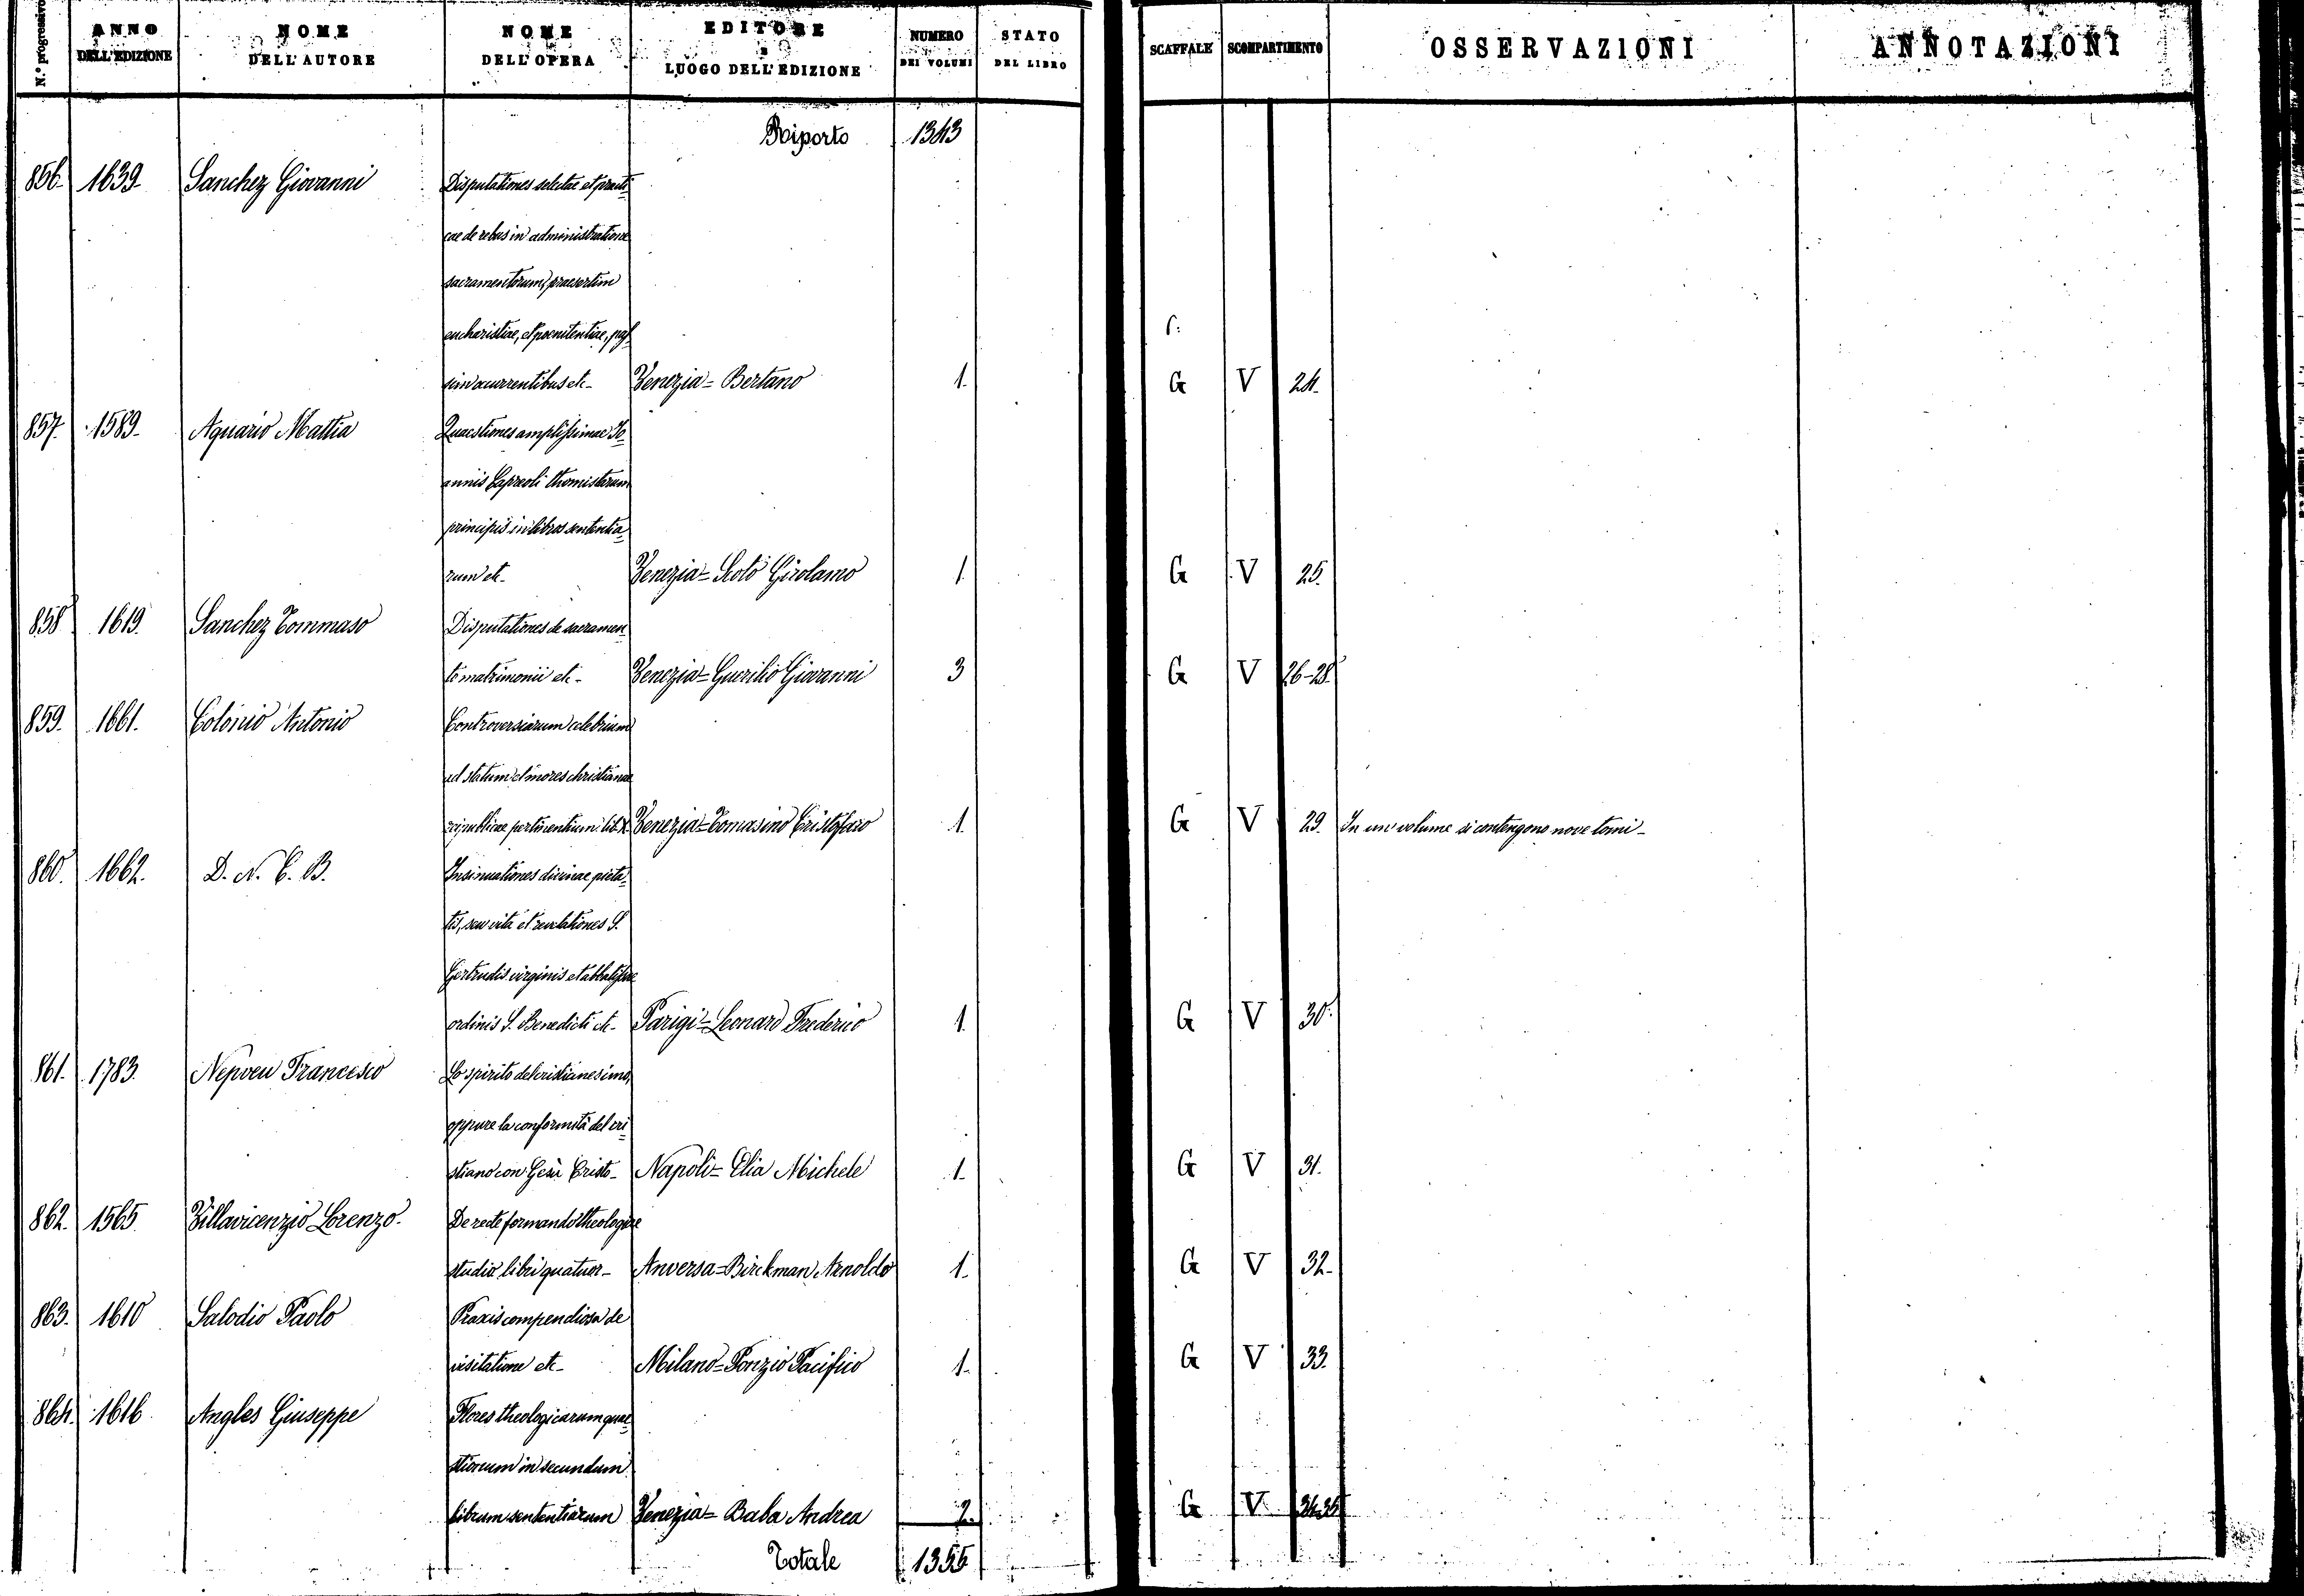 N.° progressivo
ANNO DELL'EDIZIONE
NOME DELL'AUTORE
NOME DELL'OPERA
EDITORE E LUOGO DELL'EDIZIONE
NUMERO DEI VOLUMI
STATO DEL LIBRO
SCAFFALE
SCOMPARTIMENTO
OSSERVAZIONI
ANNOTAZIONI
Riporto 1343
856. 1639. Sanchez Giovanni Disputationes selectae et practi-
cae de rebus in administratione
sacramentorum, praesertim
eucharistiae, et poenitentiae, pas-
sim occurrentibus etc- Venezia= Bertano 1. G V 24.
857. 1589. Aquario Mattia Quaestiones amplissimae Jo-
annis Capreoli thomistarum
principis in libros sententia-
rum etc- Venezia= Scoto Girolamo 1 G V 25.
858 1619. Sanchez Tommaso Disputationes de sacramen-
to matrimonii etc- Venezia= Guerilio Giovanni 3 G V 26-28.
859. 1661. Colonio Antonio Controversiarum celebrium
ad statum et mores christianae
reipublicae pertinentium lib. X Venezia= Tomasino Cristofaro 1. G V 29. In un volume si contengono nove tomi-
860. 1662. D. N. C. B. Insinuationes divinae pieta-
tis, seu vita et revelationes S.
Gertrudis virginis et abbatissae
ordinis S. Benedicti etc- Parigi= Leonard Frederico 1. G V 30.
861. 1783. Nepveu Francesco Lo spirito del cristianesimo,
oppure la conformità del cri-
stiano con Gesù Cristo- Napoli= Elia Michele 1. G V 31.
862. 1565. Villavicenzio Lorenzo- De recte formando theologiae
studio libri quatuor- Anversa= Birckman Arnoldo 1. G V 32.
863. 1610 Salodio Paolo Praxis compendiosa de
visitatione etc- Milano= Ponzio Pacifico 1. G V 33.
864. 1616 Angles Giuseppe Flores theologicarum quae-
stionum in secundum
librum sententiarum Venezia= Baba Andrea 2. G V 34-35
Totale 1355